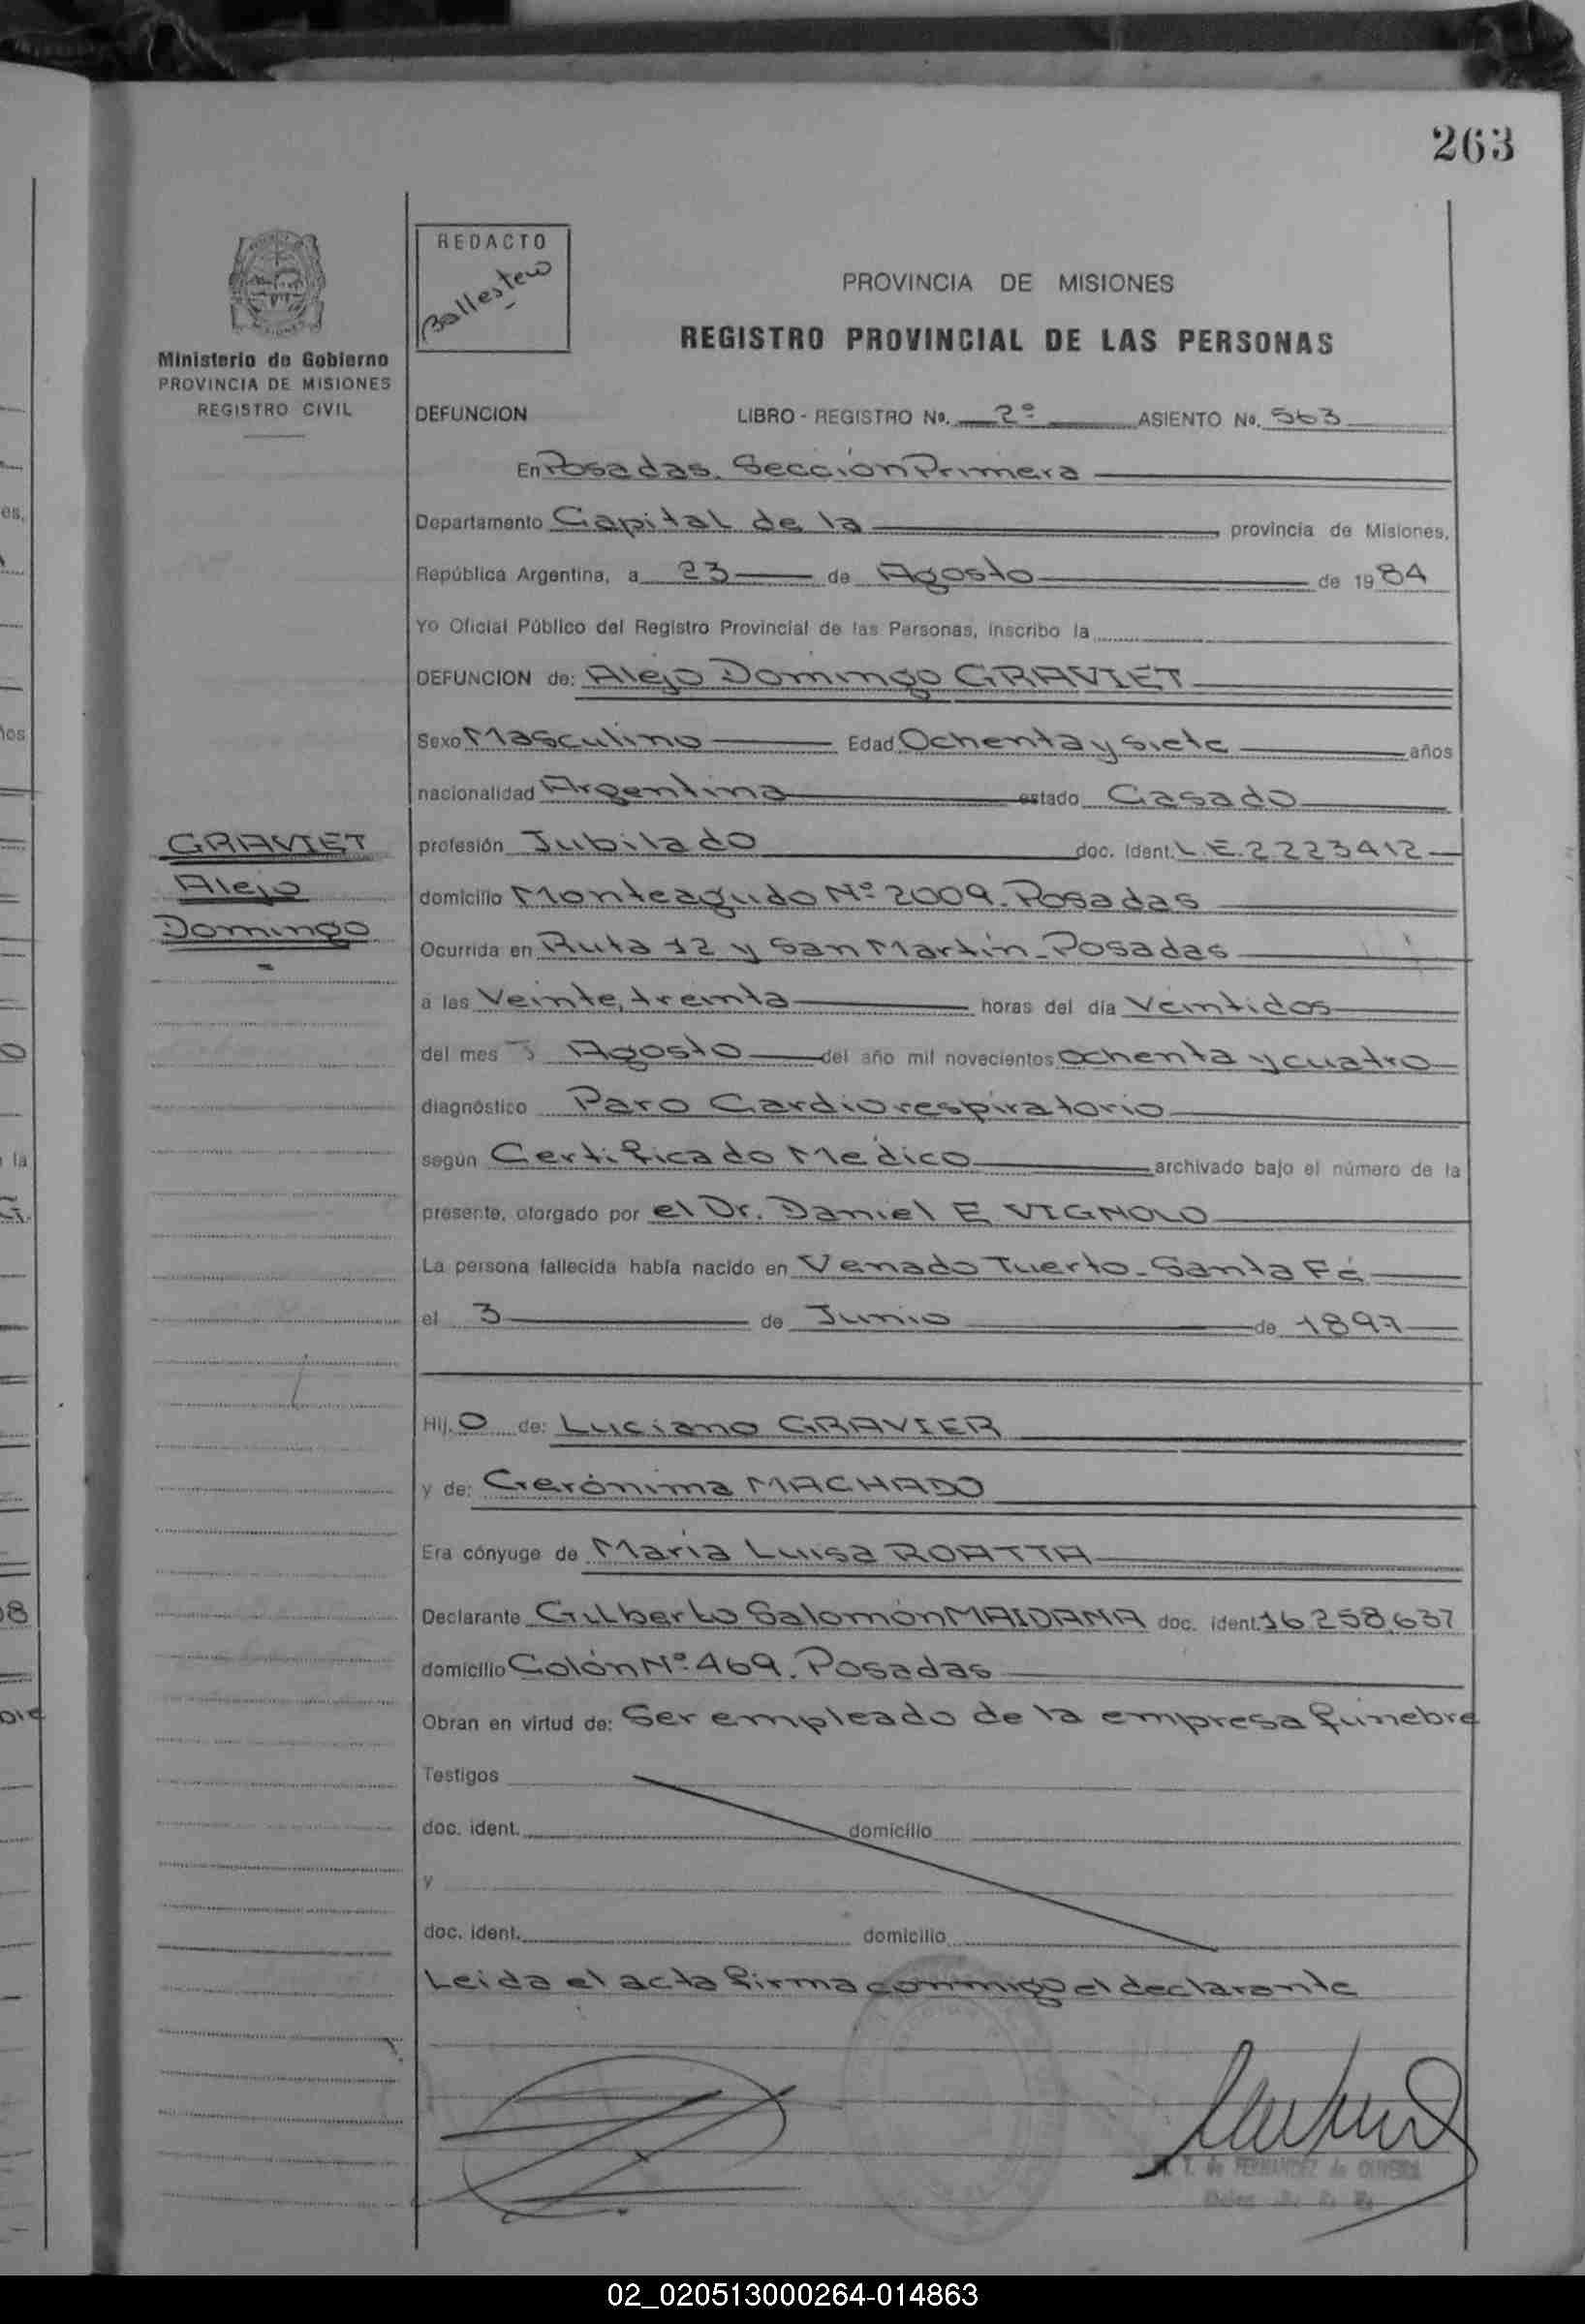 263
REDACTO
Ballestero
PROVINCIA DE MISIONES
REGISTRO PROVINCIAL DE LAS PERSONAS
Ministerio de Gobierno
PROVINCIA DE MISIONES
REGISTRO CIVIL
DEFUNCION LIBRO - REGISTRO No. 2º ASIENTO No. 563
En Posadas. Sección Primera
Departamento Capital de la provincia de Misiones,
República Argentina, a 23 de Agosto de 1984
Yo Oficial Público del Registro Provincial de las Personas, inscribo la
DEFUNCION de: Alejo Domingo GRAVIET
Sexo Masculino Edad Ochenta y Siete años
nacionalidad Argentina estado Casado
GRAVIET
Alejo
Domingo
profesión Jubilado doc. ident. L.E. 2223412
domicilio Monteagudo Nº 2009. Posadas
Ocurrida en Ruta 12 y San Martín - Posadas
a las Veinte, treinta horas del día Veintidos
del mes Agosto del año mil novecientos ochenta y cuatro
diagnóstico Paro Cardiorespiratorio
según Certificado Médico archivado bajo el número de la
presente, otorgado por el Dr. Daniel E VIGNOLO
La persona fallecida había nacido en Venado Tuerto - Santa Fé
el 3 de Junio de 1897
Hij o de: Luciano GRAVIER
y de: Gerónima MACHADO
Era cónyuge de María Luisa ROATTA
Declarante Gilberto Salomón MAIDANA doc. ident. 16.258.637
domicilio Colón Nº 469. Posadas
Obran en virtud de: Ser empleado de la empresa fúnebre
Testigos
doc. ident. domicilio
y
doc. ident. domicilio
Leida el acta firma conmigo el declarante
T. de FERNANDEZ de OLIVEIRA
02_020513000264-014863